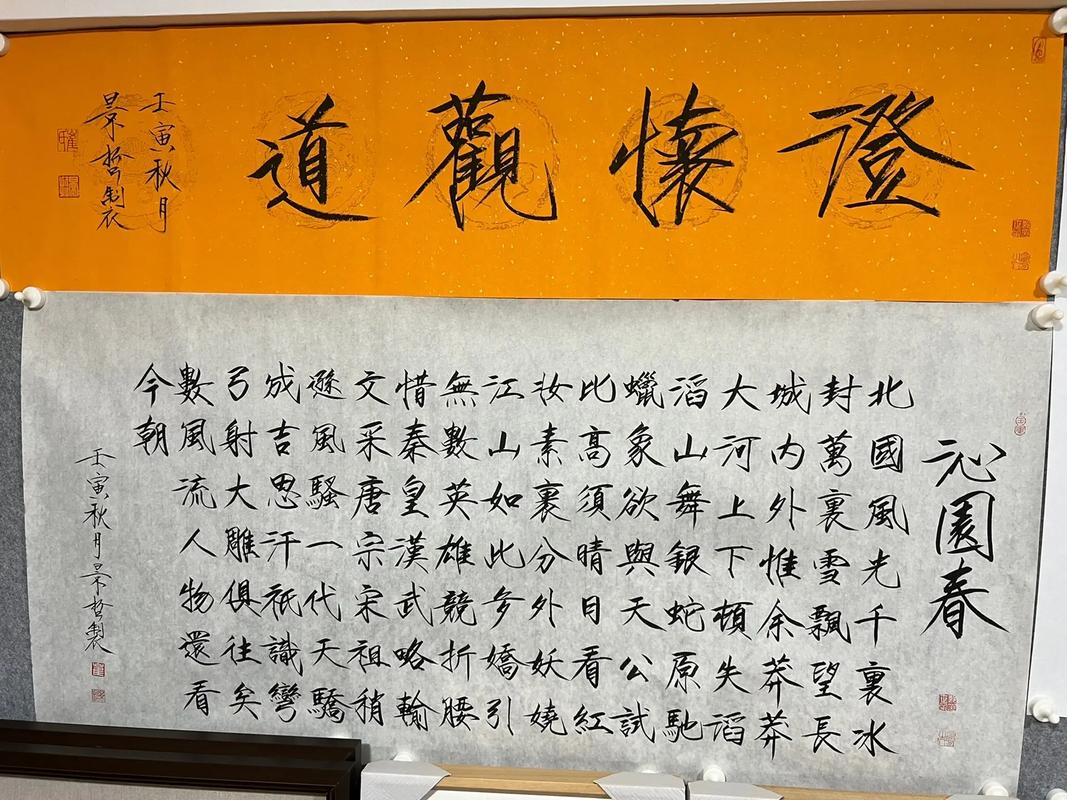 澄懷觀道
壬寅秋月
景哲製
沁園春
北國風光千裏冰
封萬裏雪飄望長
城内外惟余莽莽
大河上下頓失滔
滔山舞銀蛇原馳
蠟象欲與天公試
比高須晴日看紅
妆素裏分外妖嬈
江山如此多嬌引
無數英雄競折腰
惜秦皇漢武略輸
文采唐宗宋祖稍
遜風騷一代天驕
成吉思汗祇識彎
弓射大雕俱往矣
數風流人物還看
今朝
壬寅秋月景哲製